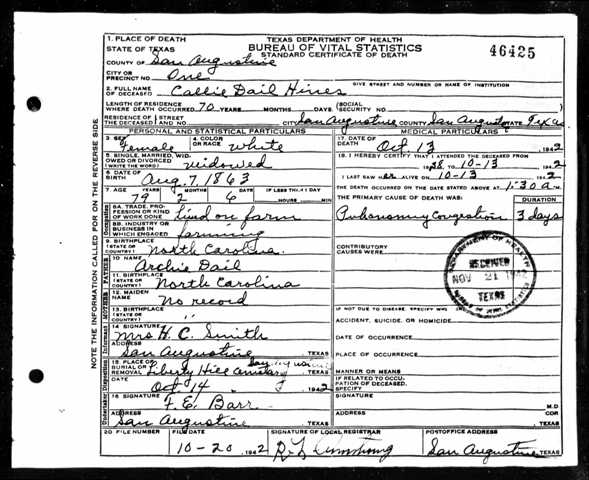 1. PLACE OF DEATH
STATE OF TEXAS
TEXAS DEPARTMENT OF HEALTH
BUREAU OF VITAL STATISTICS
STANDARD CERTIFICATE OF DEATH
46425
COUNTY OF San Augustine
CITY OR PRECINCT NO. One
GIVE STREET AND NUMBER OR NAME OF INSTITUTION
2. FULL NAME OF DECEASED Callie Dail Hines
LENGTH OF RESIDENCE WHERE DEATH OCCURRED 70 YEARS MONTHS DAYS (SOCIAL SECURITY NO.
RESIDENCE OF THE DECEASED STREET AND NO. CITY San Augustine COUNTY San Augustine STATE Texas
PERSONAL AND STATISTICAL PARTICULARS
3. SEX Female
4. COLOR OR RACE white
5. SINGLE, MARRIED, WIDOWED OR DIVORCED widowed
6. DATE OF BIRTH Aug. 7, 1863
7. AGE YEARS MONTHS DAYS IF LESS THAN 1 DAY
79 2 6 HOURS MIN
8A. TRADE, PROFESSION OR KIND OF WORK DONE Lived on farm
8B. INDUSTRY OR BUSINESS IN WHICH ENGAGED farming
9. BIRTHPLACE (STATE OR COUNTRY) North Carolina
10. NAME Archie Dail
11. BIRTHPLACE (STATE OR COUNTRY) North Carolina
12. MAIDEN NAME No record
13. BIRTHPLACE (STATE OR COUNTRY) "
14 SIGNATURE Mrs H. C. Smith
ADDRESS San Augustine TEXAS
15. PLACE OF BURIAL OR REMOVAL Liberty Hill Cemetery San Augustine TEXAS
DATE Oct 14 1942
16 SIGNATURE F. E. Barr
ADDRESS San Augustine TEXAS
MEDICAL PARTICULARS
17. DATE OF DEATH Oct 13 1942
18. I HEREBY CERTIFY THAT I ATTENDED THE DECEASED FROM
1938 TO 10-13 1942
I LAST SAW her ALIVE ON 10-13 1942
THE DEATH OCCURRED ON THE DATE STATED ABOVE AT 1:30 a M
THE PRIMARY CAUSE OF DEATH WAS: DURATION
Pulmonary Congestion 3 days
CONTRIBUTORY CAUSES WERE
DEPARTMENT OF HEALTH
RECEIVED
NOV 21 1942
TEXAS
IF NOT DUE TO DISEASE, SPECIFY WHETHER
ACCIDENT, SUICIDE, OR HOMICIDE
DATE OF OCCURRENCE
PLACE OF OCCURRENCE
MANNER OR MEANS
IF RELATED TO OCCUPATION OF DECEASED, SPECIFY
SIGNATURE M.D
ADDRESS COR TEXAS
20 FILE NUMBER FILE DATE SIGNATURE OF LOCAL REGISTRAR POSTOFFICE ADDRESS
10-20 1942 San Augustine TEXAS
NOTE INFORMATION CALLED FOR ON THE REVERSE SIDE.
Occupation
FATHER
MOTHER
Informant
Disposition
Undertaker